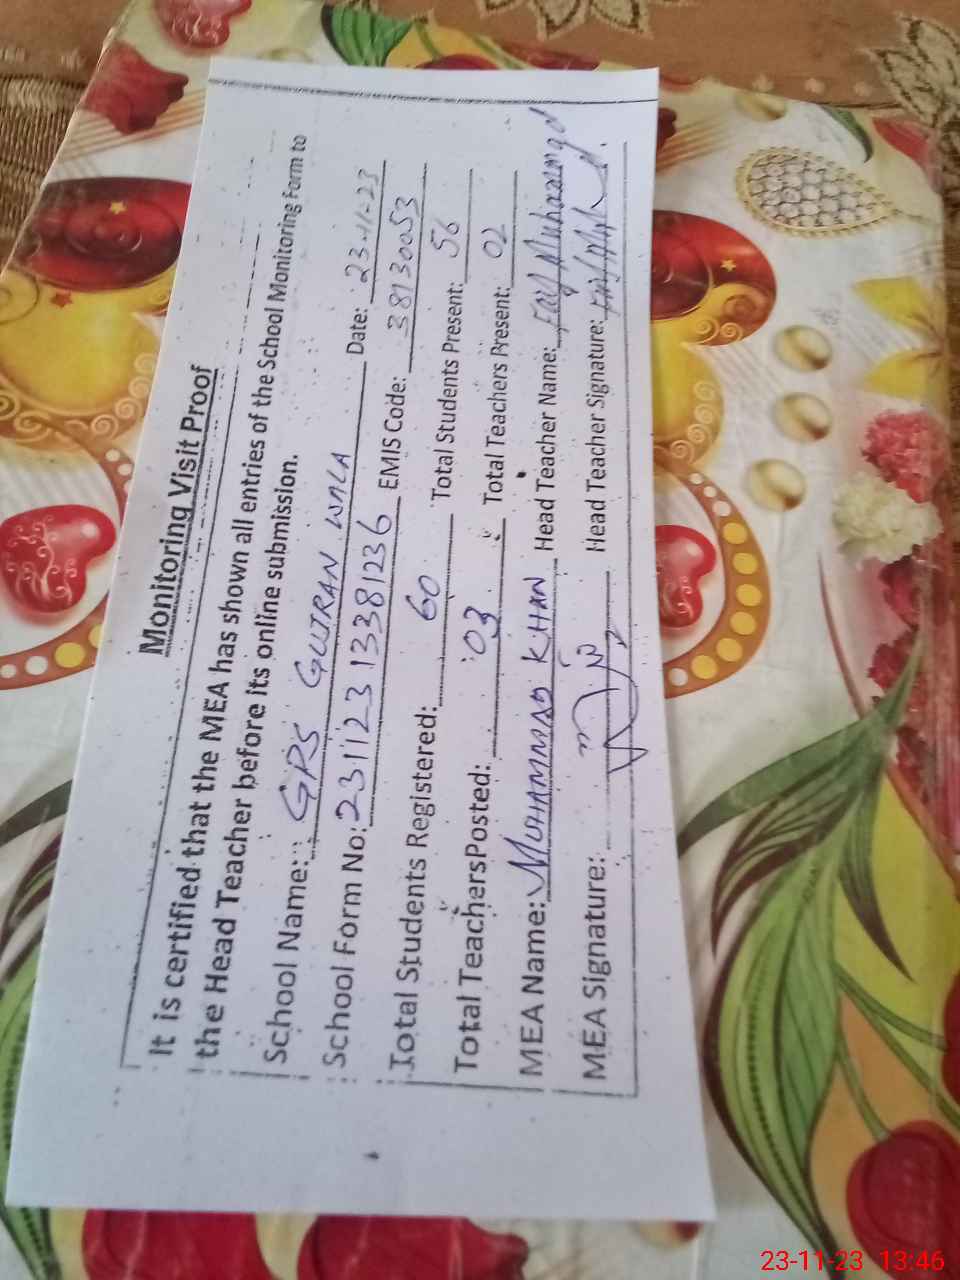 Monitoring Visit Proof
It is certified that the MEA has shown all entries of the School Monitoring Form to
the Head Teacher before its online submission.
School Name: GPS GUJRAN WALA Date: 23-11-23
School Form No: 231123 13381236 EMIS Code: 38130053
Total Students Registered: 60 Total Students Present: 56
Total TeachersPosted: 03 Total Teachers Present: 02
MEA Name: MUHAMMAD KHAN Head Teacher Name: Faiz Muhammad
MEA Signature: Head Teacher Signature:
23-11-23 13:46